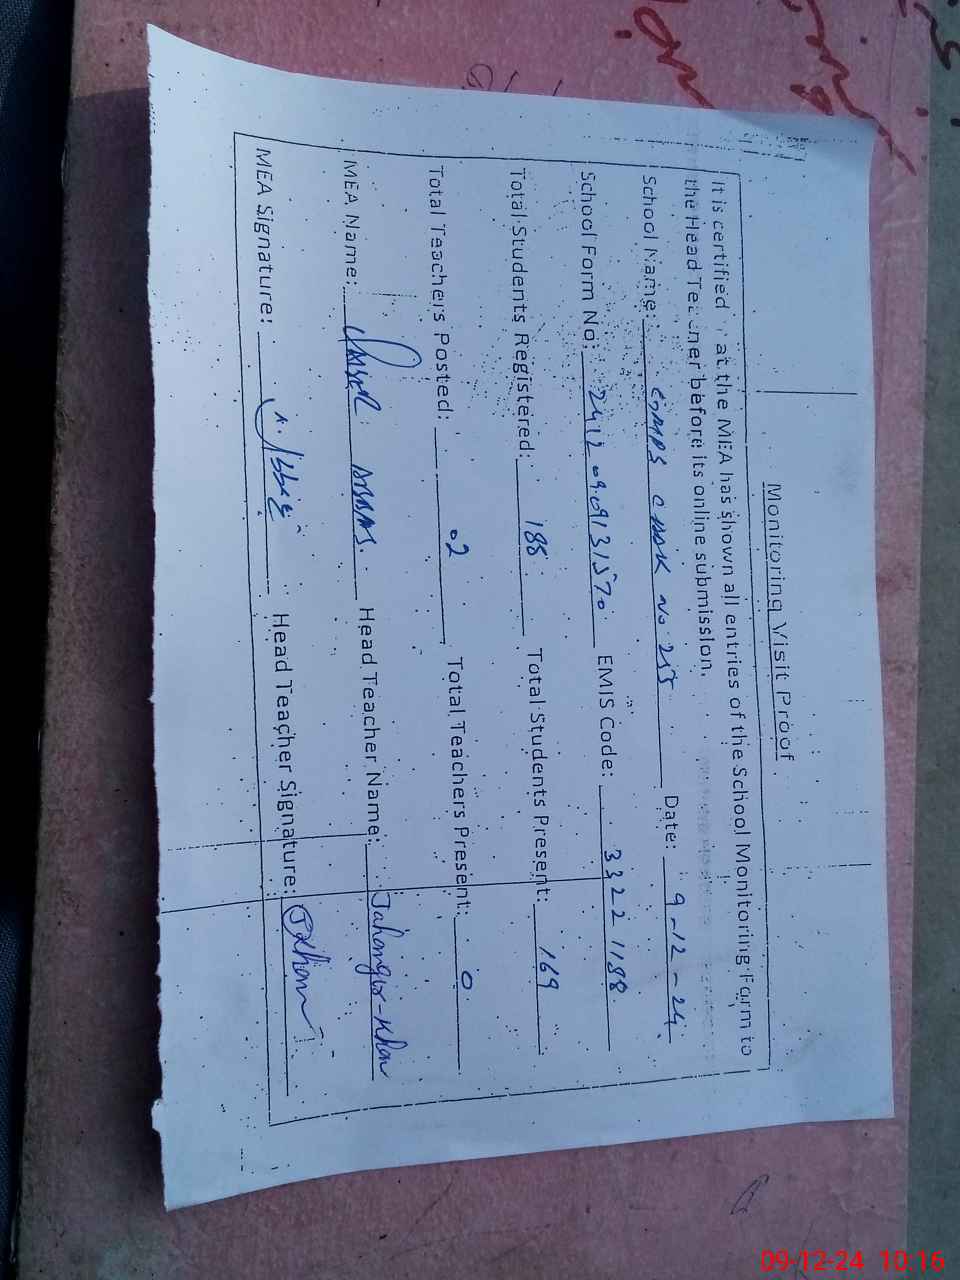 Monitoring Visit Proof
It is certified at the MEA has shown all entries of the School Monitoring Form to
the Head Teacher before its online submission.
School Name: GMPS CHAK No 255 Date: 9-12-24
School Form No: 2412 09.09131570 EMIS Code: 33221188
Total Students Registered: 188 Total Students Present: 169
Total Teachers Posted: 02 Total Teachers Present: 0
MEA Name: ABBAS. Head Teacher Name: Jahangir-Khan
MEA Signature: Head Teacher Signature:
09-12-24 10:16